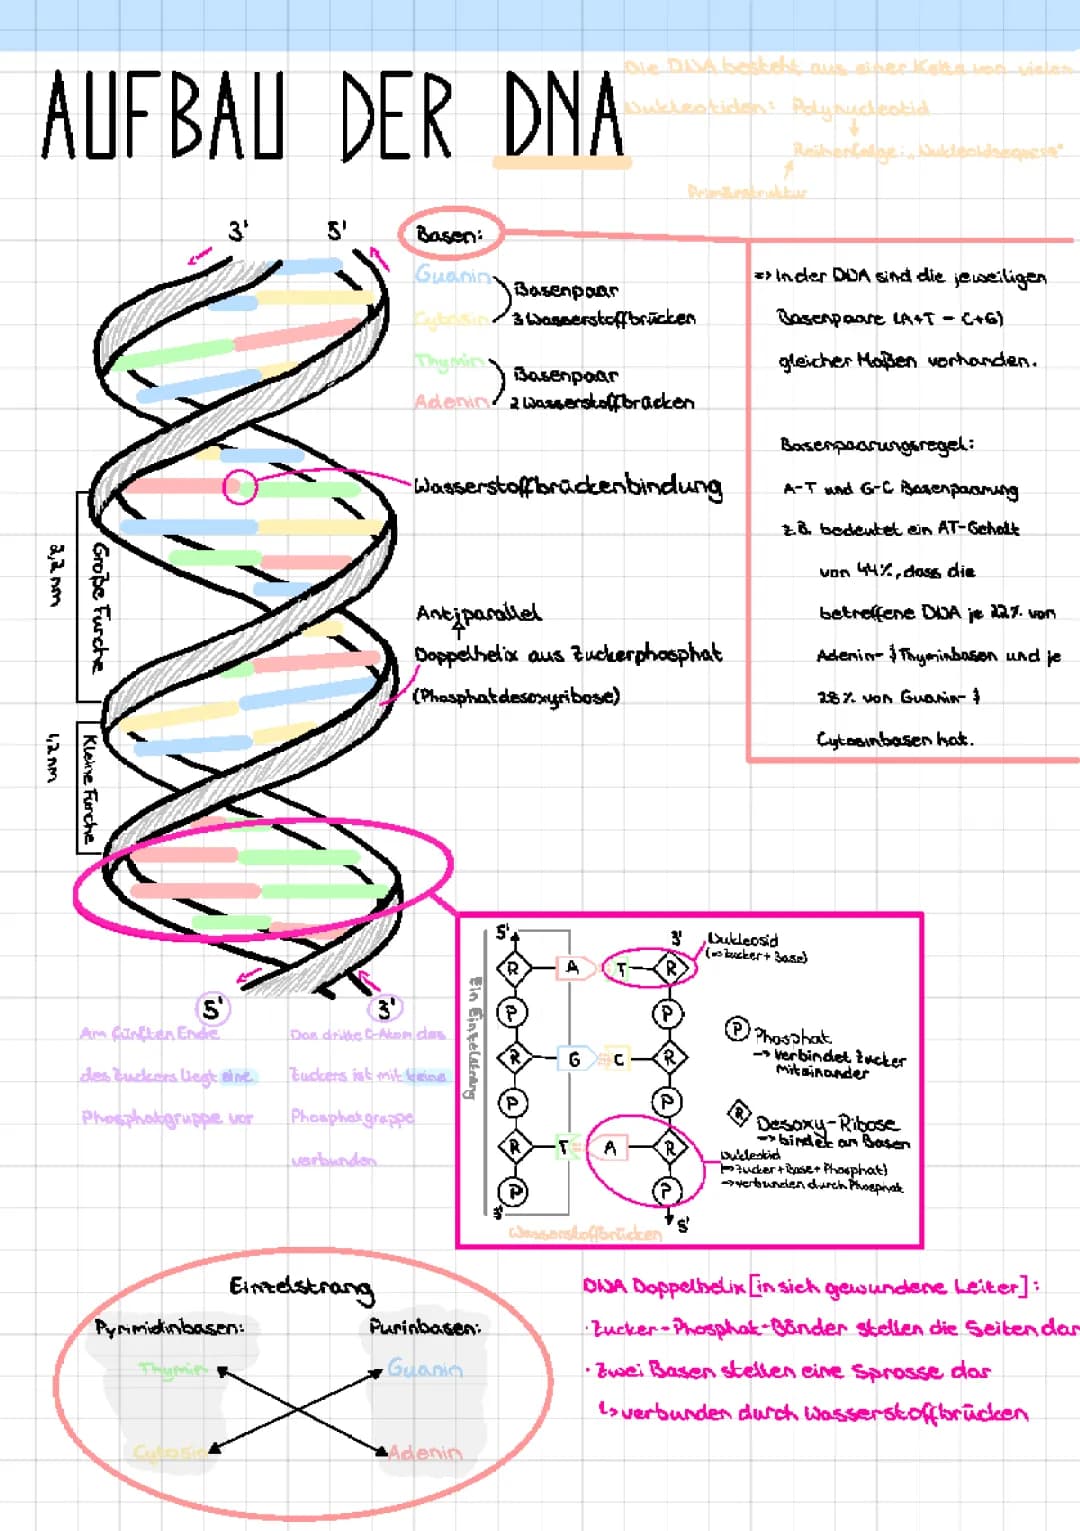 AUFBAU DER DNA
Die DNA besteht aus einer Kette von vielen
Nukleotiden: Polynucleotid
Reihenfolge: „Nukleotidsequenz"
Primärstruktur
3' 5'
Basen:
Guanin
Cytosin
Basenpaar
3 Wasserstoffbrücken
Thymin
Adenin
Basenpaar
2 Wasserstoffbrücken
Wasserstoffbrückenbindung
Antiparallel
Doppelhelix aus Zuckerphosphat
(Phosphatdesoxyribose)
=> In der DNA sind die jeweiligen
Basenpaare (A+T - C+G)
gleicher Maßen vorhanden.
Basenpaarungsregel:
A-T und G-C Basenpaarung
z.B. bedeutet ein AT-Gehalt
von 44%, dass die
betreffene DNA je 22% von
Adenin- & Thyminbasen und je
28% von Guanin- &
Cytosinbasen hat.
Große Furche
2,2 nm
Kleine Furche
1,2 nm
5' 3'
Am fünften Ende
des Zuckers liegt eine
Phosphatgruppe vor
Das dritte C-Atom des
Zuckers ist mit keine
Phosphatgruppe
verbunden
Ein Einzelstrang
5' 3'
R A T R
P P
R G C R
P P
R T A R
P P
3' 5'
Wasserstoffbrücken
Nukleosid
(=>Zucker+Base)
P Phosphat
-> verbindet Zucker
miteinander
R Desoxy-Ribose
-> bindet an Basen
Nukleotid
(=>Zucker+Base+Phosphat)
-> verbunden durch Phosphat
Einzelstrang
Pyrimidinbasen: Purinbasen:
Thymin Guanin
Cytosin Adenin
DNA Doppelhelix [in sich gewundene Leiter]:
· Zucker-Phosphat-Bänder stellen die Seiten dar
· Zwei Basen stellen eine Sprosse dar
↳ verbunden durch Wasserstoffbrücken